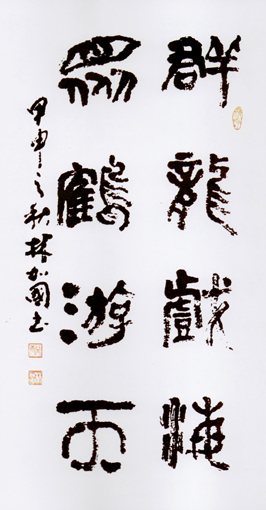 群龍戲海
眾鶴游天
甲申之秋林加國书